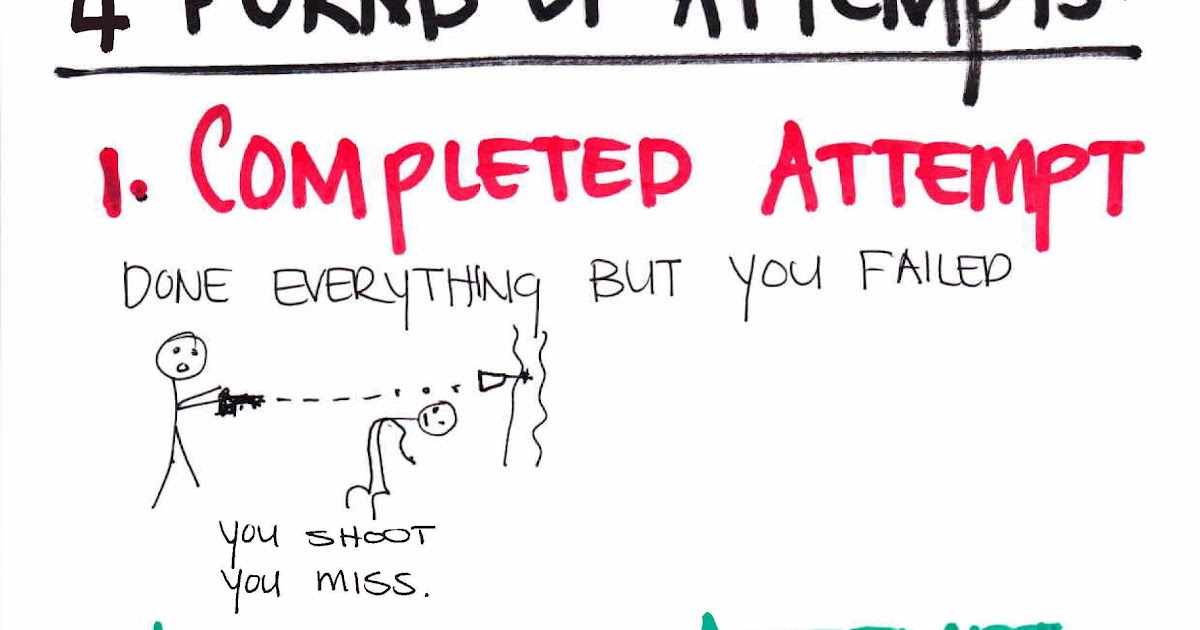 4 FORMS OF ATTEMPTS
1. COMPLETED ATTEMPT
DONE EVERYTHING BUT YOU FAILED
YOU SHOOT
YOU MISS.